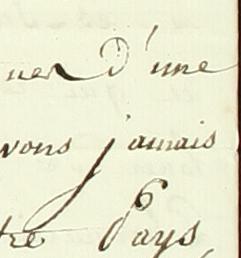 ner d'une
vons jamais
tre Pays,